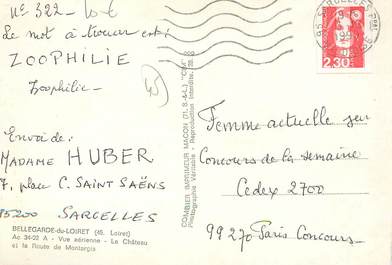 N° 322 -
Le mot à trouver est:
ZOOPHILIE
Zoophilie -
Envoi de:
MADAME HUBER
7, place C. SAINT SAËNS
95200 SARCELLES
BELLEGARDE-du-LOIRET (45. Loiret)
Ac 34-22 A - Vue aérienne - Le Château
et la Route de Montargis
COMBIER IMPRIMEUR MACON (71. S.-&-L.) "CIM"
Photographie Véritable - Reproduction Interdite
2,30
Femme actuelle jeu
Concours de la semaine
Cedex 2700
99270 Paris Concours